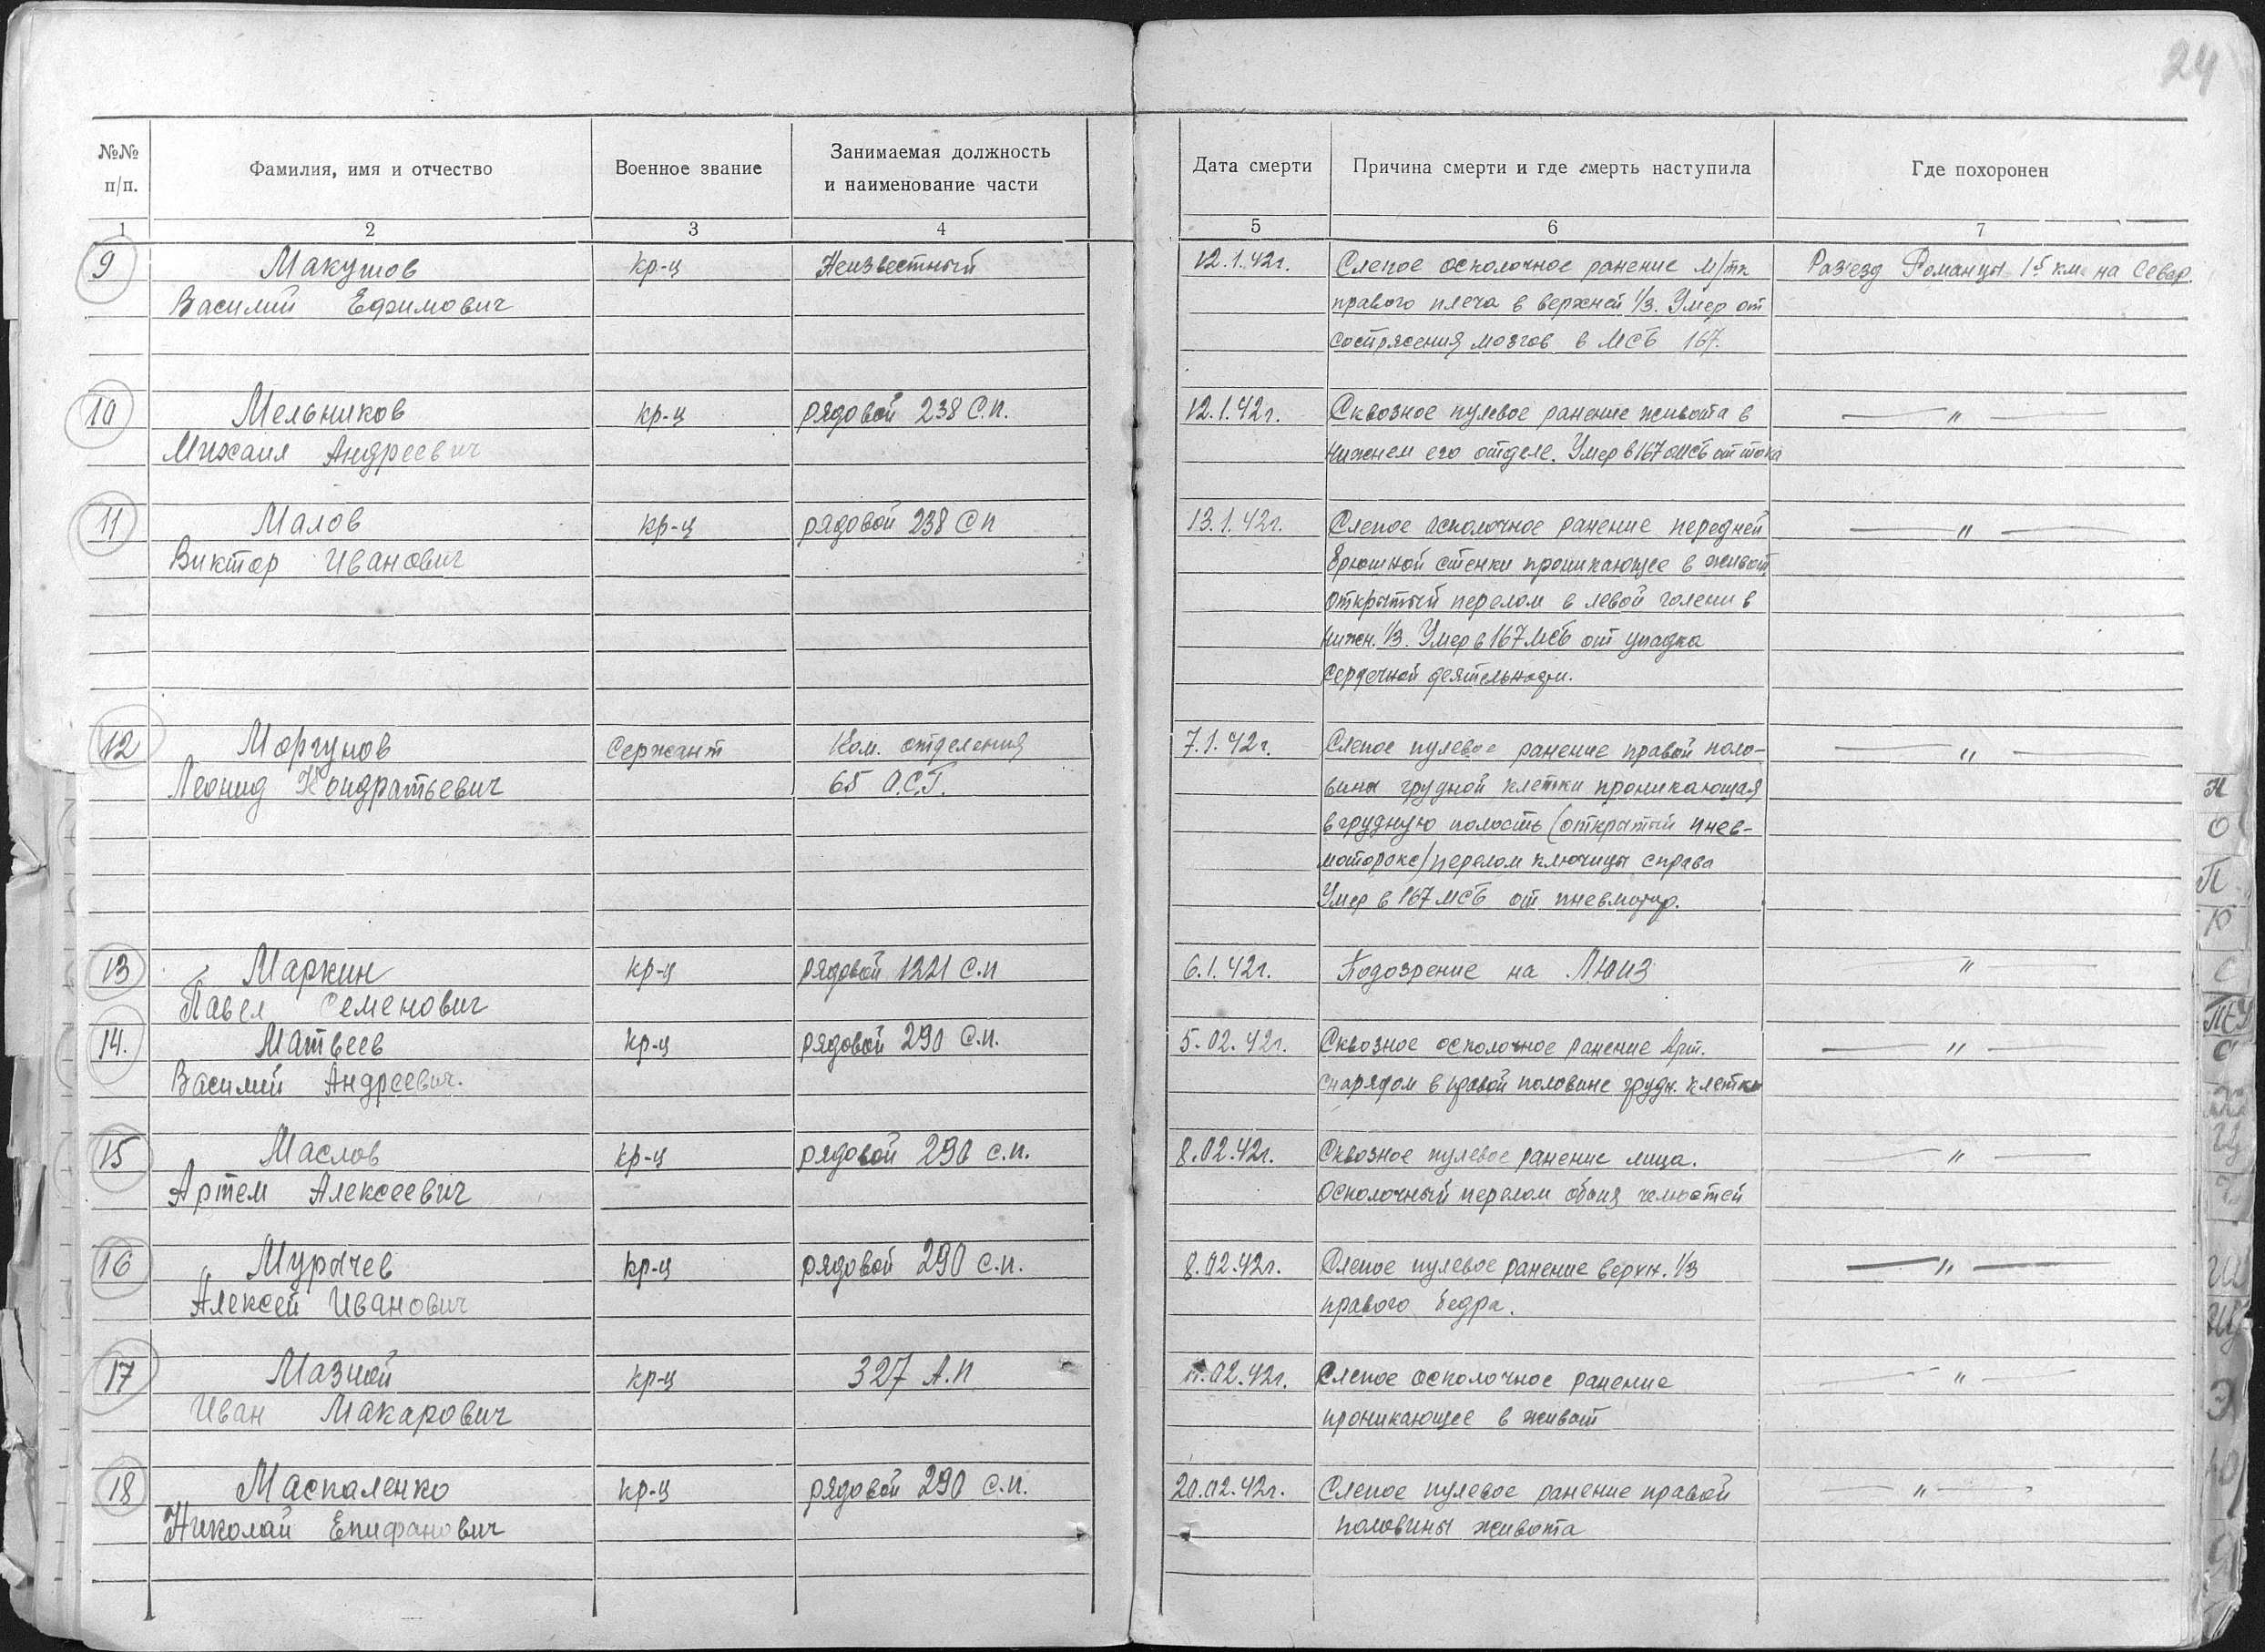 24
№№ п/п.
Фамилия, имя и отчество
Военное звание
Занимаемая должность и наименование части
Дата смерти
Причина смерти и где смерть наступила
Где похоронен
1 2 3 4 5 6 7
9 Макушов кр-ц Неизвестный 12.1.42г. Слепое осколочное ранение м/тк Раз'езд Романцы 1.5 км на Север.
Василий Ефимович правого плеча в верхней 1/3. Умер от
сострясения мозгов в МСБ 167.
10 Мельников кр-ц рядовой 238 С.п. 12.1.42г. Сквозное пулевое ранение живота в — " —
Михаил Андреевич нижнем его отделе. Умер в 167 омсб от шока
11 Малов кр-ц рядовой 238 Сп 13.1.42г. Слепое осколочное ранение передней — " —
Виктор Иванович брюшной стенки проникающее в живот
открытый перелом в левой голени в
нижн. 1/3. Умер в 167 МСБ от упадка
сердечной деятельности.
12 Моргунов Сержант Ком. отделения 7.1.42г. Слепое пулевое ранение правой поло- — " —
Леонид Кондратьевич 65 О.С.Г. вины грудной клетки проникающая
в грудную полость (открытый пнев-
моторокс) перелом ключицы справа
Умер в 167 МСБ от пневмотор.
13 Маркин кр-ц рядовой 1221 С.п 6.1.42г. Подозрение на — " —
Павел Семенович
14. Матвеев кр-ц рядовой 290 С.п. 5.02.42г. Сквозное осколочное ранение Арт. — " —
Василий Андреевич. снарядом в правой половине грудн. клетки
15 Маслов кр-ц рядовой 290 с.п. 8.02.42г. Сквозное пулевое ранение лица. — " —
Артем Алексеевич Осколочный перелом обоих челюстей
16 Мурычев кр-ц рядовой 290 с.п. 8.02.42г. Слепое пулевое ранение верхн. 1/3 — " —
Алексей Иванович правого бедра.
17 Мазной кр-ц 327 А.п 11.02.42г. Слепое осколочное ранение — " —
Иван Макарович проникающее в живот
18 Маскаленко кр-ц рядовой 290 с.п. 20.02.42г. Слепое пулевое ранение правой — " —
Николай Епифанович половины живота
Н
О
П
С
Ш
Э
Ю
Я